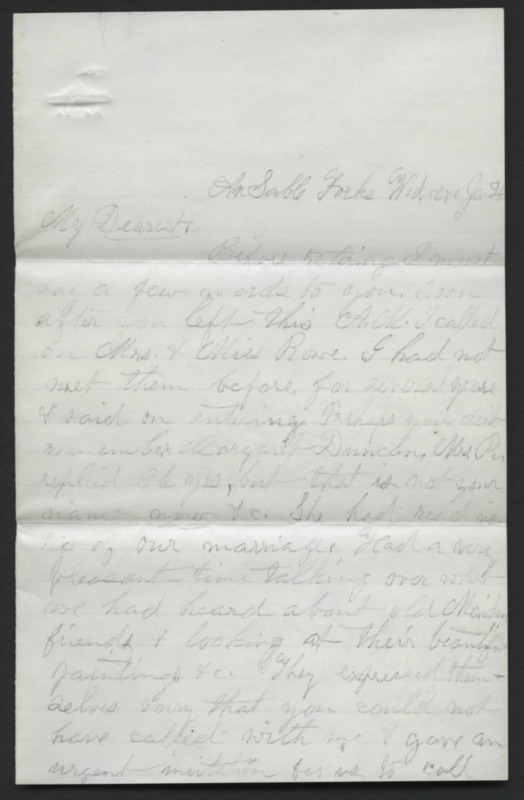 Au Sable Forks Wed. eve Ja
My Dearest.
Before retiring I must
say a few words to you. Soon
after you left this A.M. I called
on Mrs. & Miss Rowe. I had not
met them before, for several years
& said on entering Perhaps you don't
remember Margaret Duncan, Mrs R.
replied Oh yes, but that is not your
name now &c. She had read no-
tice of our marriage. Had a very
pleasant time talking over what
we had heard about old
friends & looking at their beautiful
paintings &c. They expressed them-
selves sorry that you could not
have called with me & gave an
urgent invitation for us to call